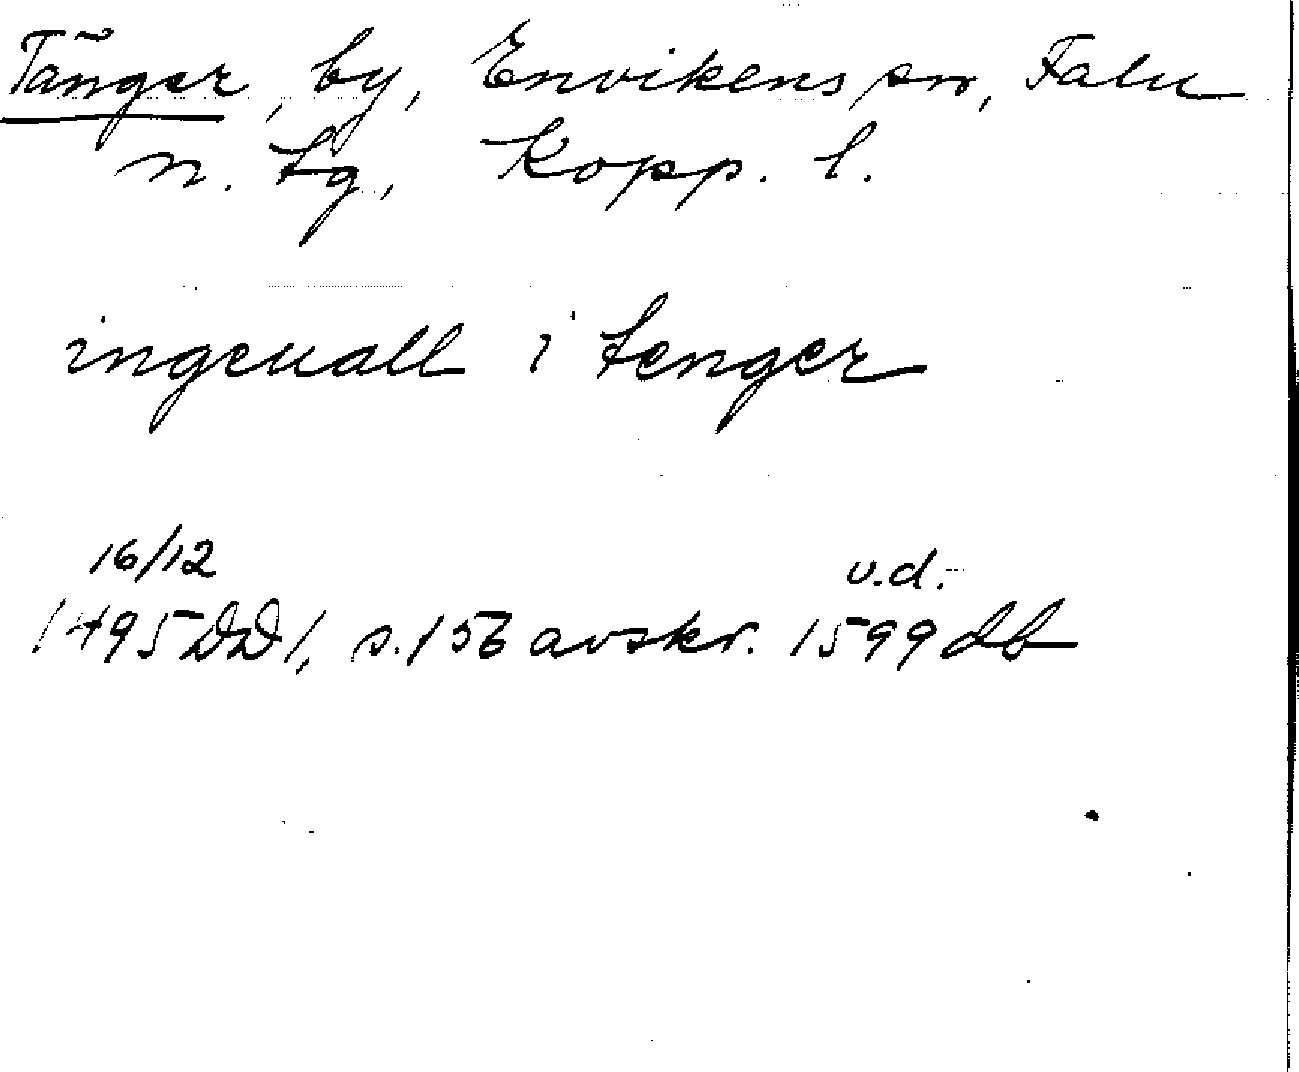 Tänger, by, Envikens sn, Falu
n. tg, Kopp. l.
ingeuall i tenger
16/12 u.d.
1495 DD 1, s. 156 avskr. 1599 db